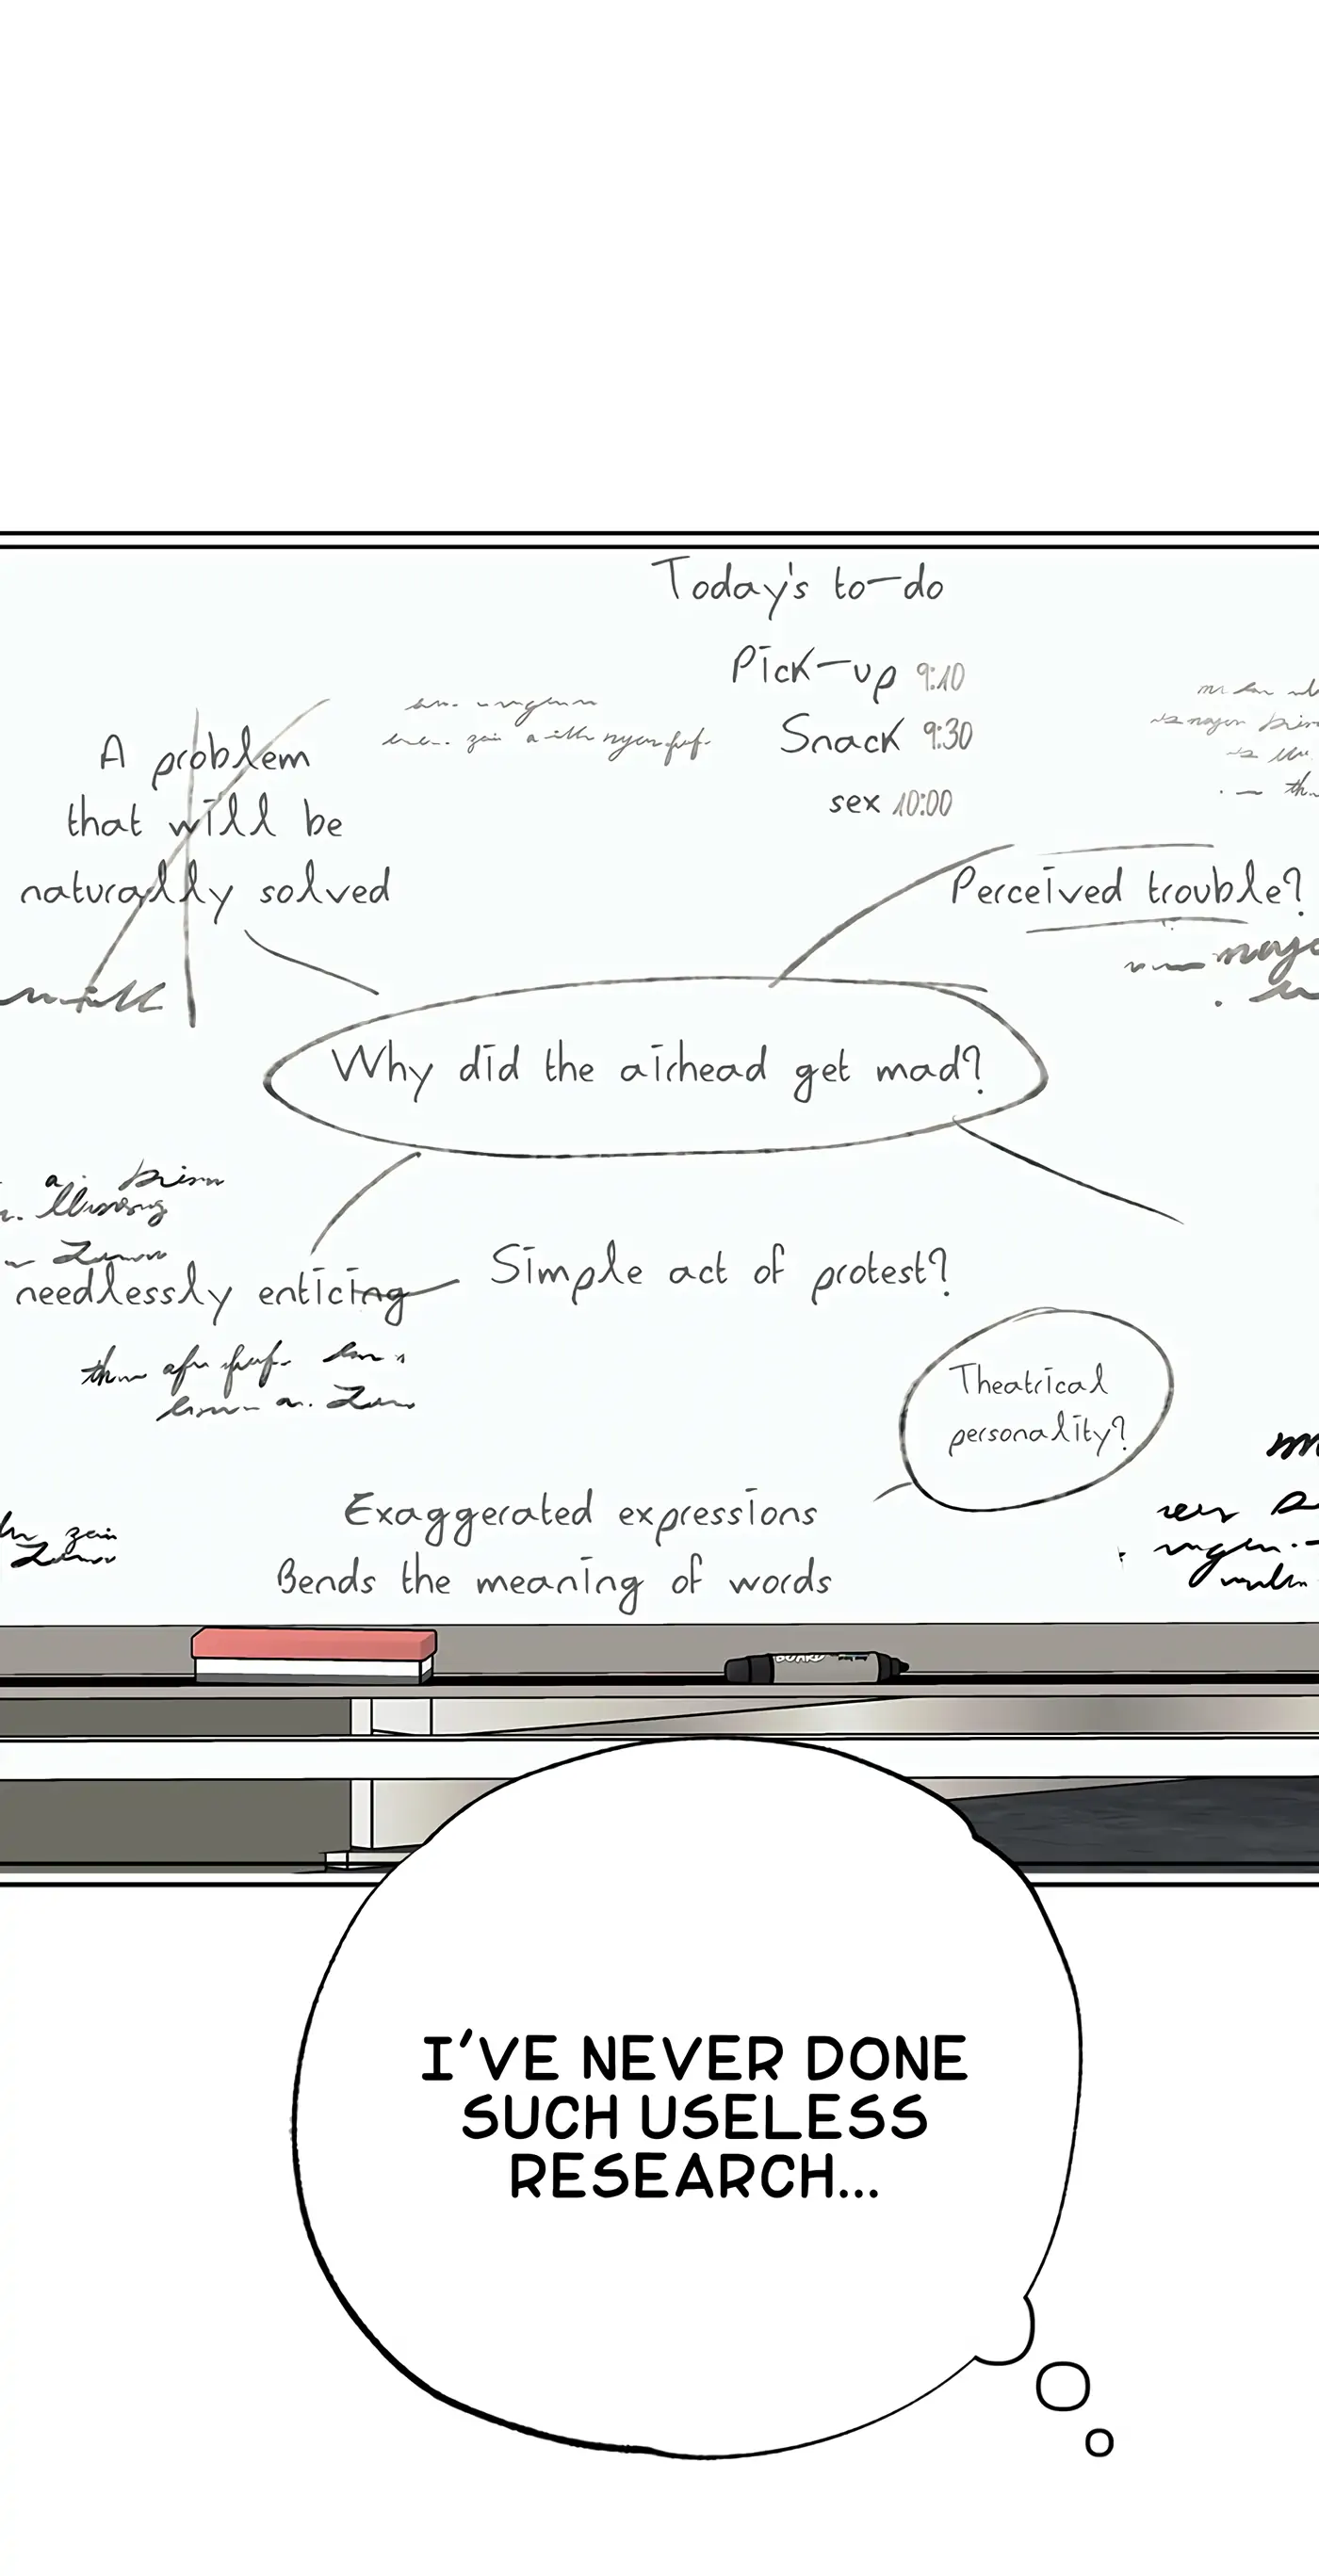 Today's to-do
Pick-up 9:10
Snack 9:30
sex 10:00
A problem
that will be
naturally solved
Perceived trouble?
Why did the airhead get mad?
needlessly enticing
Simple act of protest?
Theatrical
personality?
Exaggerated expressions
Bends the meaning of words
BOARD
I'VE NEVER DONE
SUCH USELESS
RESEARCH...